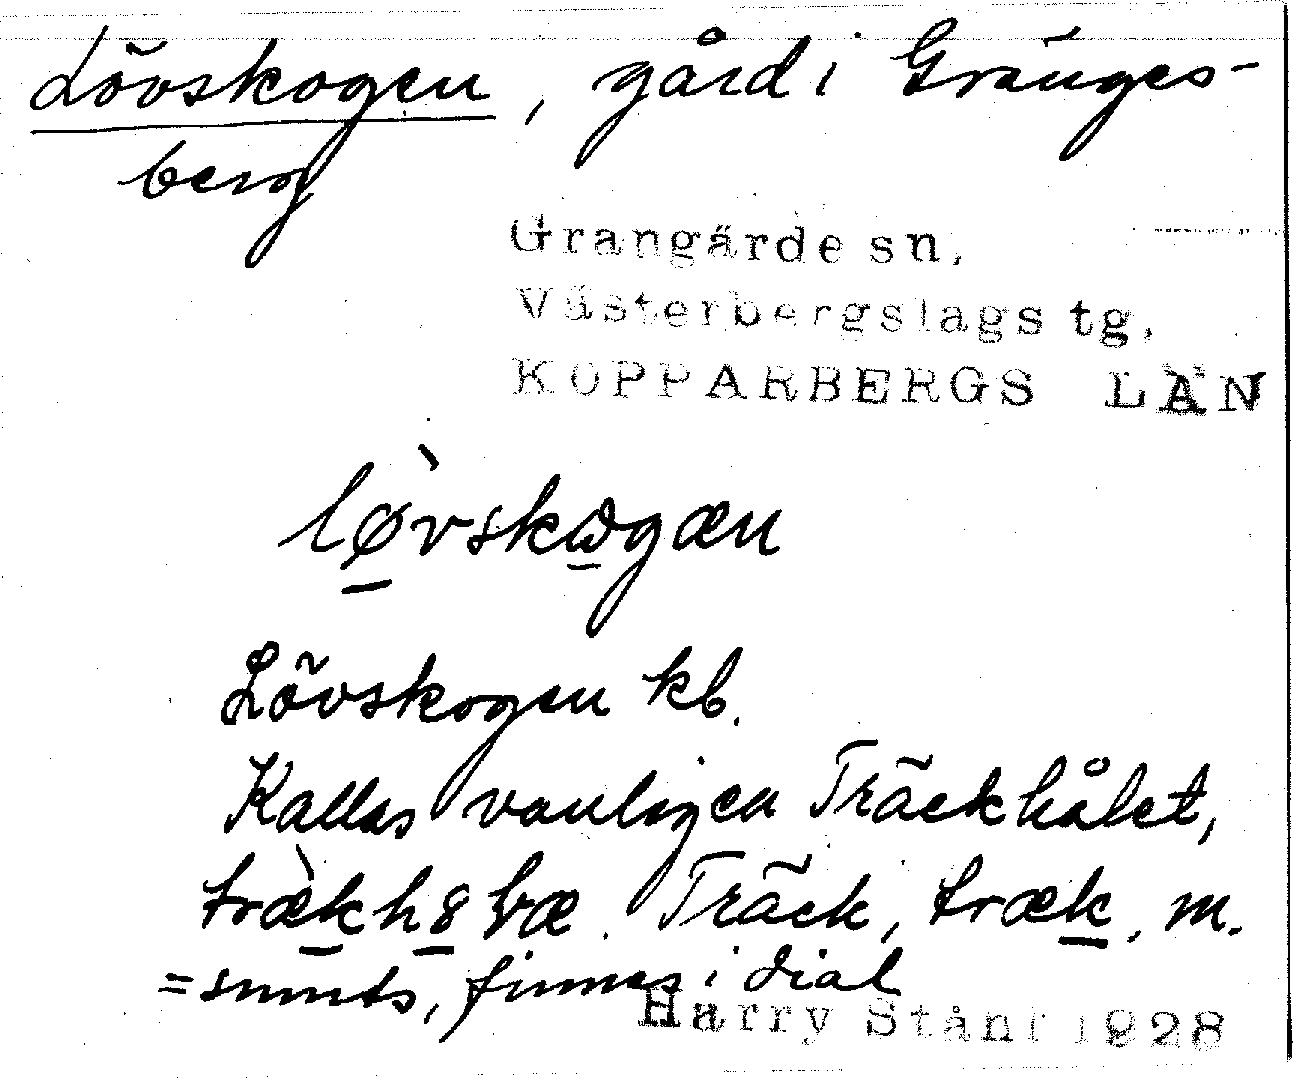 Lövskogen, gård i Gränges-
berg
Grangärde sn,
Västerbergslags tg,
KOPPARBERGS LÄN
lø̀vskωgæn
Lövskogen kb.
Kallas vanligen Träckhålet,
træ̀kh8ɫæ. Träck, træk, m.
= smuts, finnes i dial
Harry Ståhl 1928